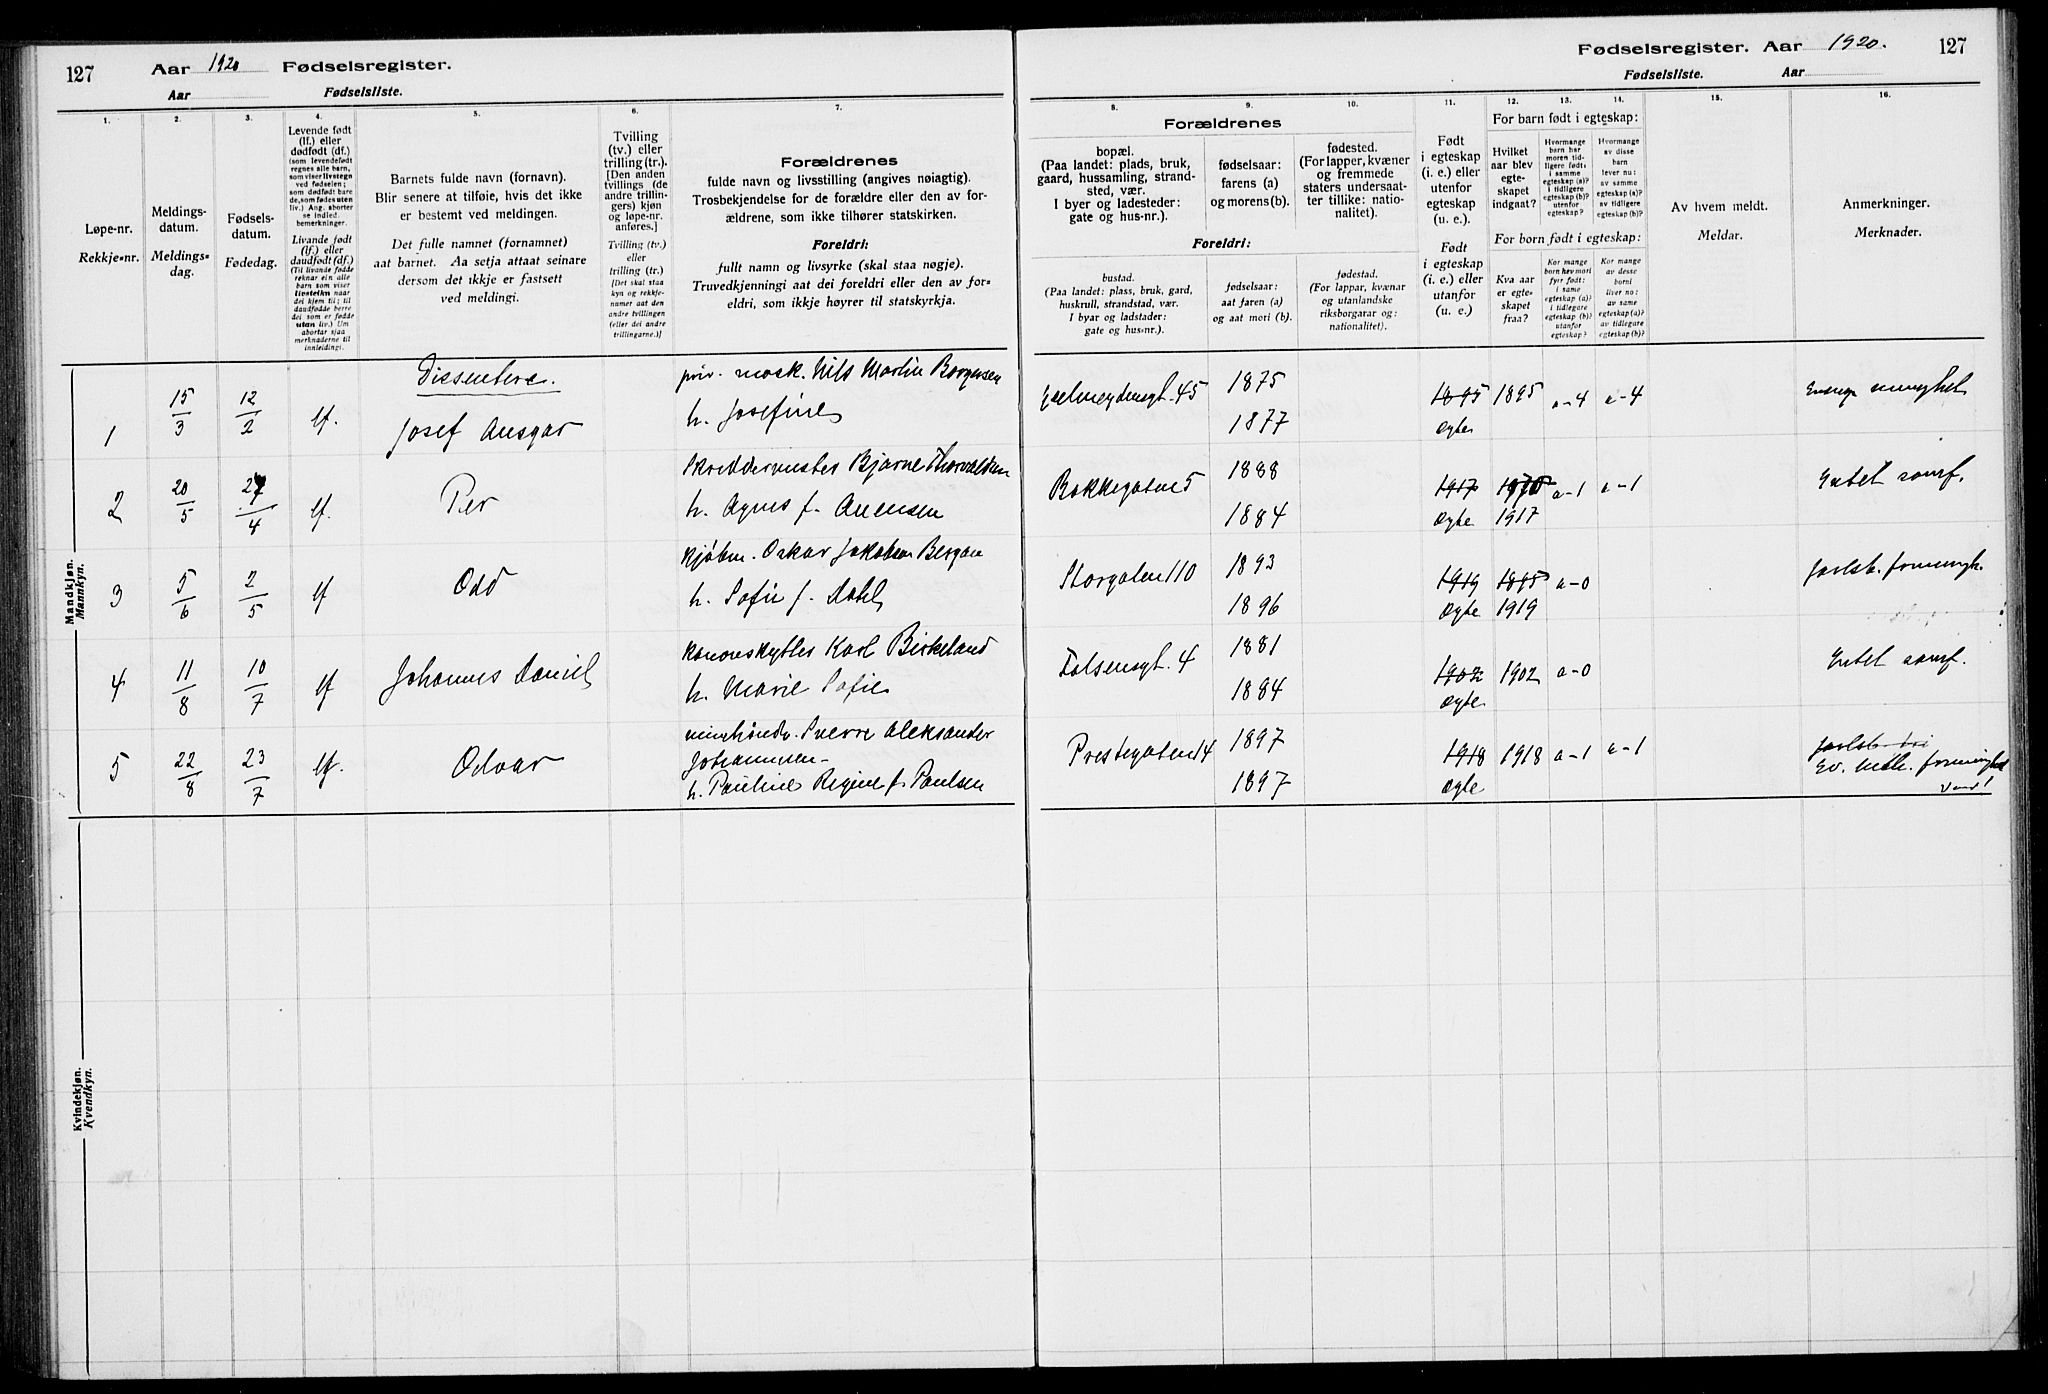 127 Aar 1920 Fødselsregister.
Aar Fødselsliste.
Fødselsregister. Aar 1920. 127
Fødselsliste. Aar
1. 2. 3. 4. 5. 6. 7.
Løpe-nr.
Rekkje-nr.
Meldings-
datum.
Meldings-
dag.
Fødsels-
datum.
Fødedag.
Levende født
(lf.) eller
dødfødt (df.)
(som levendefødt
regnes alle barn,
som viser livstegn
ved fødselen;
som dødfødt bare
de, som fødes uten
liv.) Ang. aborter
se indled.
bemerkninger.
Livande født
(lf.) eller
daudfødt (df.)
(Til livande fødde
reknar ein alle
barn som viser
livsteikn naar
dei kjem til; til
daudfødde berre
dei som er fødde
utan liv.) Um
abortar sjaa
merknaderne til
innleiding.
Barnets fulde navn (fornavn).
Blir senere at tilføie, hvis det ikke
er bestemt ved meldingen.
Det fulle namnet (fornamnet)
aat barnet. Aa setja attaat seinare
dersom det ikkje er fastsett
ved meldingi.
Tvilling
(tv.) eller
trilling (tr.).
[Den anden
tvillings (de
andre trillin-
gers) kjøn
og løpe-nr.
anføres.]
Tvilling (tv.)
eller
trilling (tr.)
[Det skal staa
kyn og rekkje-
numer aat den
andre tvillingen
(eller dei andre
trillingarne.)]
Forældrenes
fulde navn og livsstilling (angives nøiagtig).
Trosbekjendelse for de forældre eller den av for-
ældrene, som ikke tilhører statskirken.
Foreldri:
fullt namn og livsyrke (skal staa nøgje).
Truvedkjenningi aat dei foreldri eller den av for-
eldri, som ikkje høyrer til statskyrkja.
8. 9. 10. 11. 12. 13. 14. 15. 16.
Forældrenes
bopæl.
(Paa landet: plads, bruk,
gaard, hussamling, strand-
sted, vær.
I byer og ladesteder:
gate og hus-nr.).
fødselsaar:
farens (a)
og morens (b).
fødested.
(For lapper, kvæner
og fremmede
staters undersaat-
ter tillike: natio-
nalitet).
Foreldri:
bustad.
(Paa landet: plass, bruk, gard,
huskrull, strandstad, vær.
I byar og ladstader:
gate og hus-nr.).
fødselsaar:
aat faren (a)
og aat mori (b).
fødestad.
(For lappar, kvænar
og utanlandske
riksborgarar og:
nationalitet).
Født
i egteskap
(i. e.) eller
utenfor
egteskap
(u. e.).
Født
i egteskap
(i. e.) eller
utanfor
(u. e.)
For barn født i egteskap:
Hvilket
aar blev
egte-
skapet
indgaat?
Hvormange
barn har
moren tid-
ligere født;
i samme
egteskap (a)?
i tidligere
egteskap (b)?
utenfor
egteskap?
Hvormange
av disse
barn
lever nu:
av samme
egteskap (a)?
av tidligere
egteskap (b)?
For born født i egteskap:
Kva aar
er egte-
skapet
fraa?
Kor mange
born hev mori
fyrr født:
i same
egteskap (a)?
i tidlegare
egteskap (b)?
utanfor
egteskap?
Kor mange
av desse
borni
liver no:
av same
egteskap (a)?
av tidlegare
egteskap (b)?
Av hvem meldt.
Meldar.
Anmerkninger.
Merknader.
Mandkjøn.
Mannkyn.
Dissentere.
1 15/3 12/2 lf. Josef Ansgar
priv. mask. Nils Martin Borgersen
h. Josefine
Gjelmeydensgt. 45 1875 1877 1895 Ægte 1895 a-4 a-4
2 20/5 27/4 lf. Per
Skreddermester Bjarne Thorvaldsen
h. Agnes f. Arensen
Bakkegaten 5 1888 1884 1917 Ægte 1917 a-1 a-1 Intet samf.
3 5/6 2/5 lf Odd
kjøbm. Oskar Jakobsen Bergan
h. Sofie f. Dahl
Storgaten 110 1893 1896 1919 Ægte 1895 1919 a-0 Jarlsb. frimenigh.
4 11/8 10/7 lf Johannes Daniel
kanonskytter Karl Birkeland
h. Marie Sofie
Tolsensgt. 4 1881 1884 1902 Ægte 1902 a-0 Intet samf.
5 22/8 23/7 lf. Odvar
Sverre Aleksander
Johannesen
h. Pauline Regine f. Paulsen
Prestegaten 14 1897 1897 1918 Ægte 1918 a-1 a-1 Jarlsb. fri
Ev. luth. frimenighet
Kvindekjøn.
Kvendkyn.